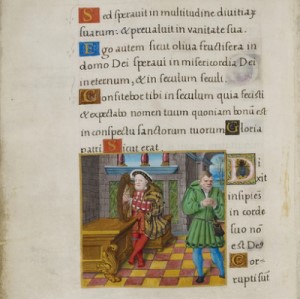 Sed speravit in multitudine divitiar
suarum: & prevaluit in vanitate sua.
Ego autem sicut oliva fructifera in
domo Dei speravi in misericordia Dei
in eternum, & in seculum seculi.
Confitebor tibi in seculum quia fecisti
& expectabo nomen tuum quoniam bonũ est
in conspectu sanctorum tuorum Gloria
patri Sicut erat
Dixit
insipiẽs
in corde
suo nõ
est De⁹
Cor-
ruptisũt